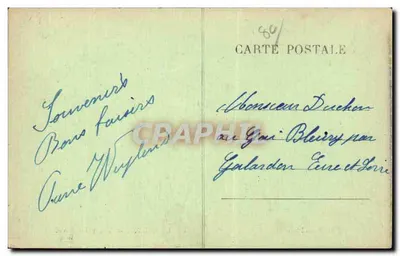 80
CARTE POSTALE
Souvenirs
Bons baisirs
Anne
Monsieur Duchon
au Gué Bleury par
Galardon Eure et Loire
CRAPHITE